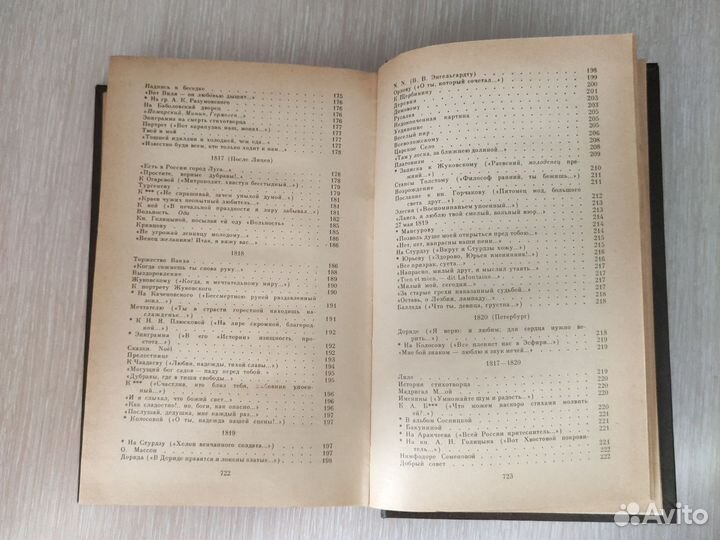 Надпись в беседке . . . 175
«Вот Виля — он любовью дышит...» . . . 176
* На гр. А. К. Разумовского . . . 176
На Баболовский дворец . . . 176
«Пожарский, Минин, Гермоген . . . 176
Эпиграмма на смерть стихотворца . . . 177
Портрет («Вот карапузик наш, монах...») . . . 177
Твой и мой . . . 177
«Тошней идиллии и холодней, чем ода» . . . 177
«Известно буди всем, кто только ходит к нам...» . . . 178
1817 (После Лицея)
«Есть в России город Луга...» . . . 178
«Простите, верные дубравы!..» . . . 178
К Огаревой («Митрополит, хвастун бесстыдный...») . . . 179
Тургеневу . . . 179
К *** («Не спрашивай, зачем унылой думой...») . . . 181
«Краев чужих неопытный любитель... . . . 181
К ней («В печальной праздности я лиру забывал...») . . . 182
Вольность. Ода . . . 182
Кн. Голицыной, посылая ей оду «Вольность» . . . 185
Кривцову . . . 185
«Не угрожай ленивцу молодому...» . . . 186
«Венец желаниям! Итак, я вижу вас...» . . . 186
1818
Торжество Вакха . . . 186
«Когда сожмешь ты снова руку...» . . . 188
Выздоровление . . . 189
Жуковскому («Когда, к мечтательному миру...») . . . 189
К портрету Жуковского . . . 190
* На Каченовского («Бессмертною рукой раздавленный
зоил...») . . . 190
Мечтателю («Ты в страсти горестной находишь на-
слажденье...») . . . 190
* К Н. Я. Плюсковой («На лире скромной, благород-
ной...») . . . 191
* Эпиграмма («В его «Истории» изящность, про-
стота...») . . . 192
Сказки. Noël . . . 192
Прелестнице . . . 193
К Чаадаеву («Любви, надежды, тихой славы...») . . . 193
«Могущий бог садов — паду перед тобой... . . . 194
«Дубравы, где в тиши свободы... . . . 194
К *** («Счастлив, кто близ тебя, любовник упоен-
ный...») . . . 195
«И я слыхал, что божий свет...» . . . 196
«Как сладостно!.. но, боги, как опасно...» . . . 196
«Послушай, дедушка, мне каждый раз...» . . . 196
* Колосовой («О ты, надежда нашей сцены!») . . . 196
1819
* На Стурдзу («Холоп венчанного солдата...») . . . 197
О. Массон . . . 197
Дорида («В Дориде нравятся и локоны златые...») . . . 198
722
N. N. (В. В. Энгельгардту) . . . 198
Орлову («О ты, который сочетал...») . . . 199
К Щербинину . . . 200
Деревня
Домовому
Русалка . . . 203
Недоконченная картина . . . 205
Уединение
Веселый пир
Всеволожскому
Царское Село . . . 208
«Там у леска, за ближнею долиной...» . . . 208
Платонизм . . . 209
* Записка к Жуковскому («Раевский, молоденец преж-
ний...») . . . 210
Стансы Толстому («Философ ранний, ты бежишь...»)
Возрождение . . . 211
Послание к кн. Горчакову («Питомец мод, большого
света друг...») . . . 212
Элегия («Воспоминаньем упоенный...»)
«Лаиса, я люблю твой смелый, вольный взор... . . . 213
27 мая 1819
* Мансурову
«Позволь душе моей открыться пред тобою...
«Нет, нет, напрасны ваши пени...
На Стурдзу («Вкруг я Стурдзы хожу...»)
* Юрьеву («Здорово, Юрьев именинник!..»)
«Все призрак, суета...»
«Напрасно, милый друг, я мыслил утаить...
«Tien et mien, — dit Lafontaine...»
«Милый мой, сегодня...
«За старые грехи наказанный судьбой...»
«Оставь, о Лезбия, лампаду...»
Баллада («Что ты, девица, грустна...»)
1820 (Петербург)
Дориде («Я верю: я любим; для сердца нужно ве-
рить...») . . . 218
* На Колосову («Все пленяет нас в Эсфири...») . . . 218
«Мне бой знаком — люблю я звук мечей... . . . 219
1817—1820
Лиле . . . 219
История стихотворца . . . 219
Мадригал М...ой . . . 219
Именины («Умножайте шум и радость...») . . . 220
К А. Б*** («Что можем наскоро стихами молвить
ей?..») . . . 221
В альбом Сосницкой . . . 221
* Бакуниной
* На Аракчеева («Всей России притеснитель...»)
* На кн. А. Н. Голицына («Вот Хвостовой покрови-
тель...»)
Нимфодоре Семеновой
Добрый совет
723
Avito